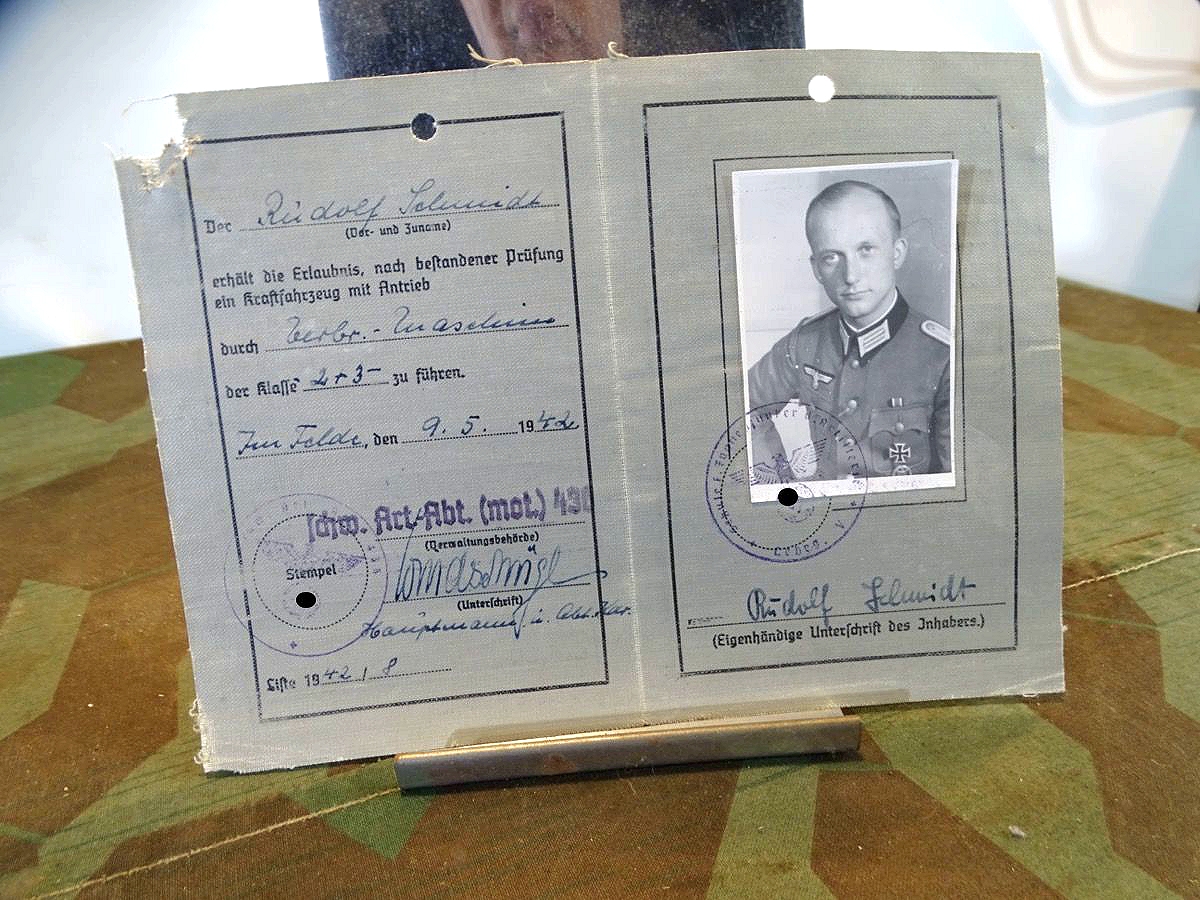 Der Rudolf Schmidt
(Vor- und Zuname)
erhält die Erlaubnis, nach bestandener Prüfung
ein Kraftfahrzeug mit Antrieb
durch Verbr.-Maschine
der Klasse 2+3 zu führen.
Im Felde, den 9. 5. 1942
schw. Art.-Abt. (mot.) 430
(Verwaltungsbehörde)
Stempel
(Unterschrift)
Hauptmann u. Abt. Kdr.
Liste 1942 / 8
Rudolf Schmidt
(Eigenhändige Unterschrift des Inhabers.)